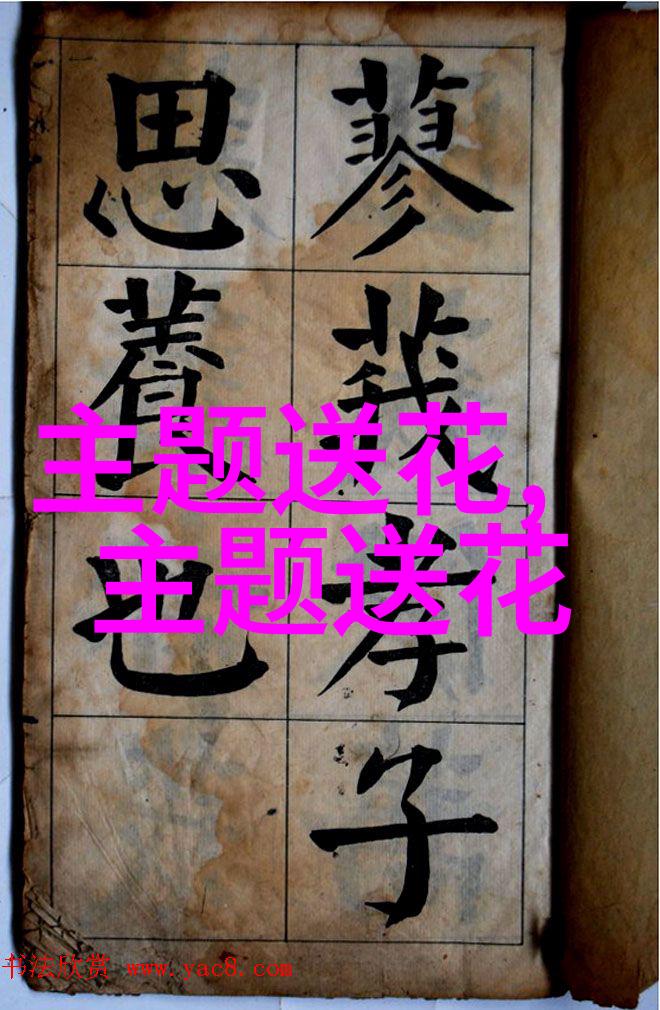 蓼莪孝子
思養也
主题送花,
主题送花
书法欣赏 www.yac8.com